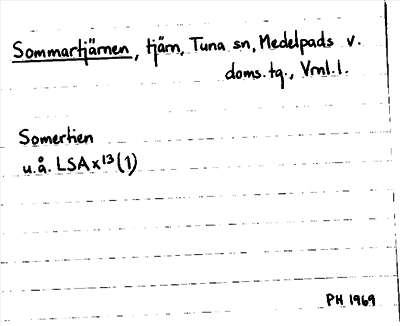 Sommartjärnen, tjärn, Tuna sn, Medelpads v.
doms.tg., Vrnl.l.
Somertien
u.å. LSA x¹³ (1)
PH 1969